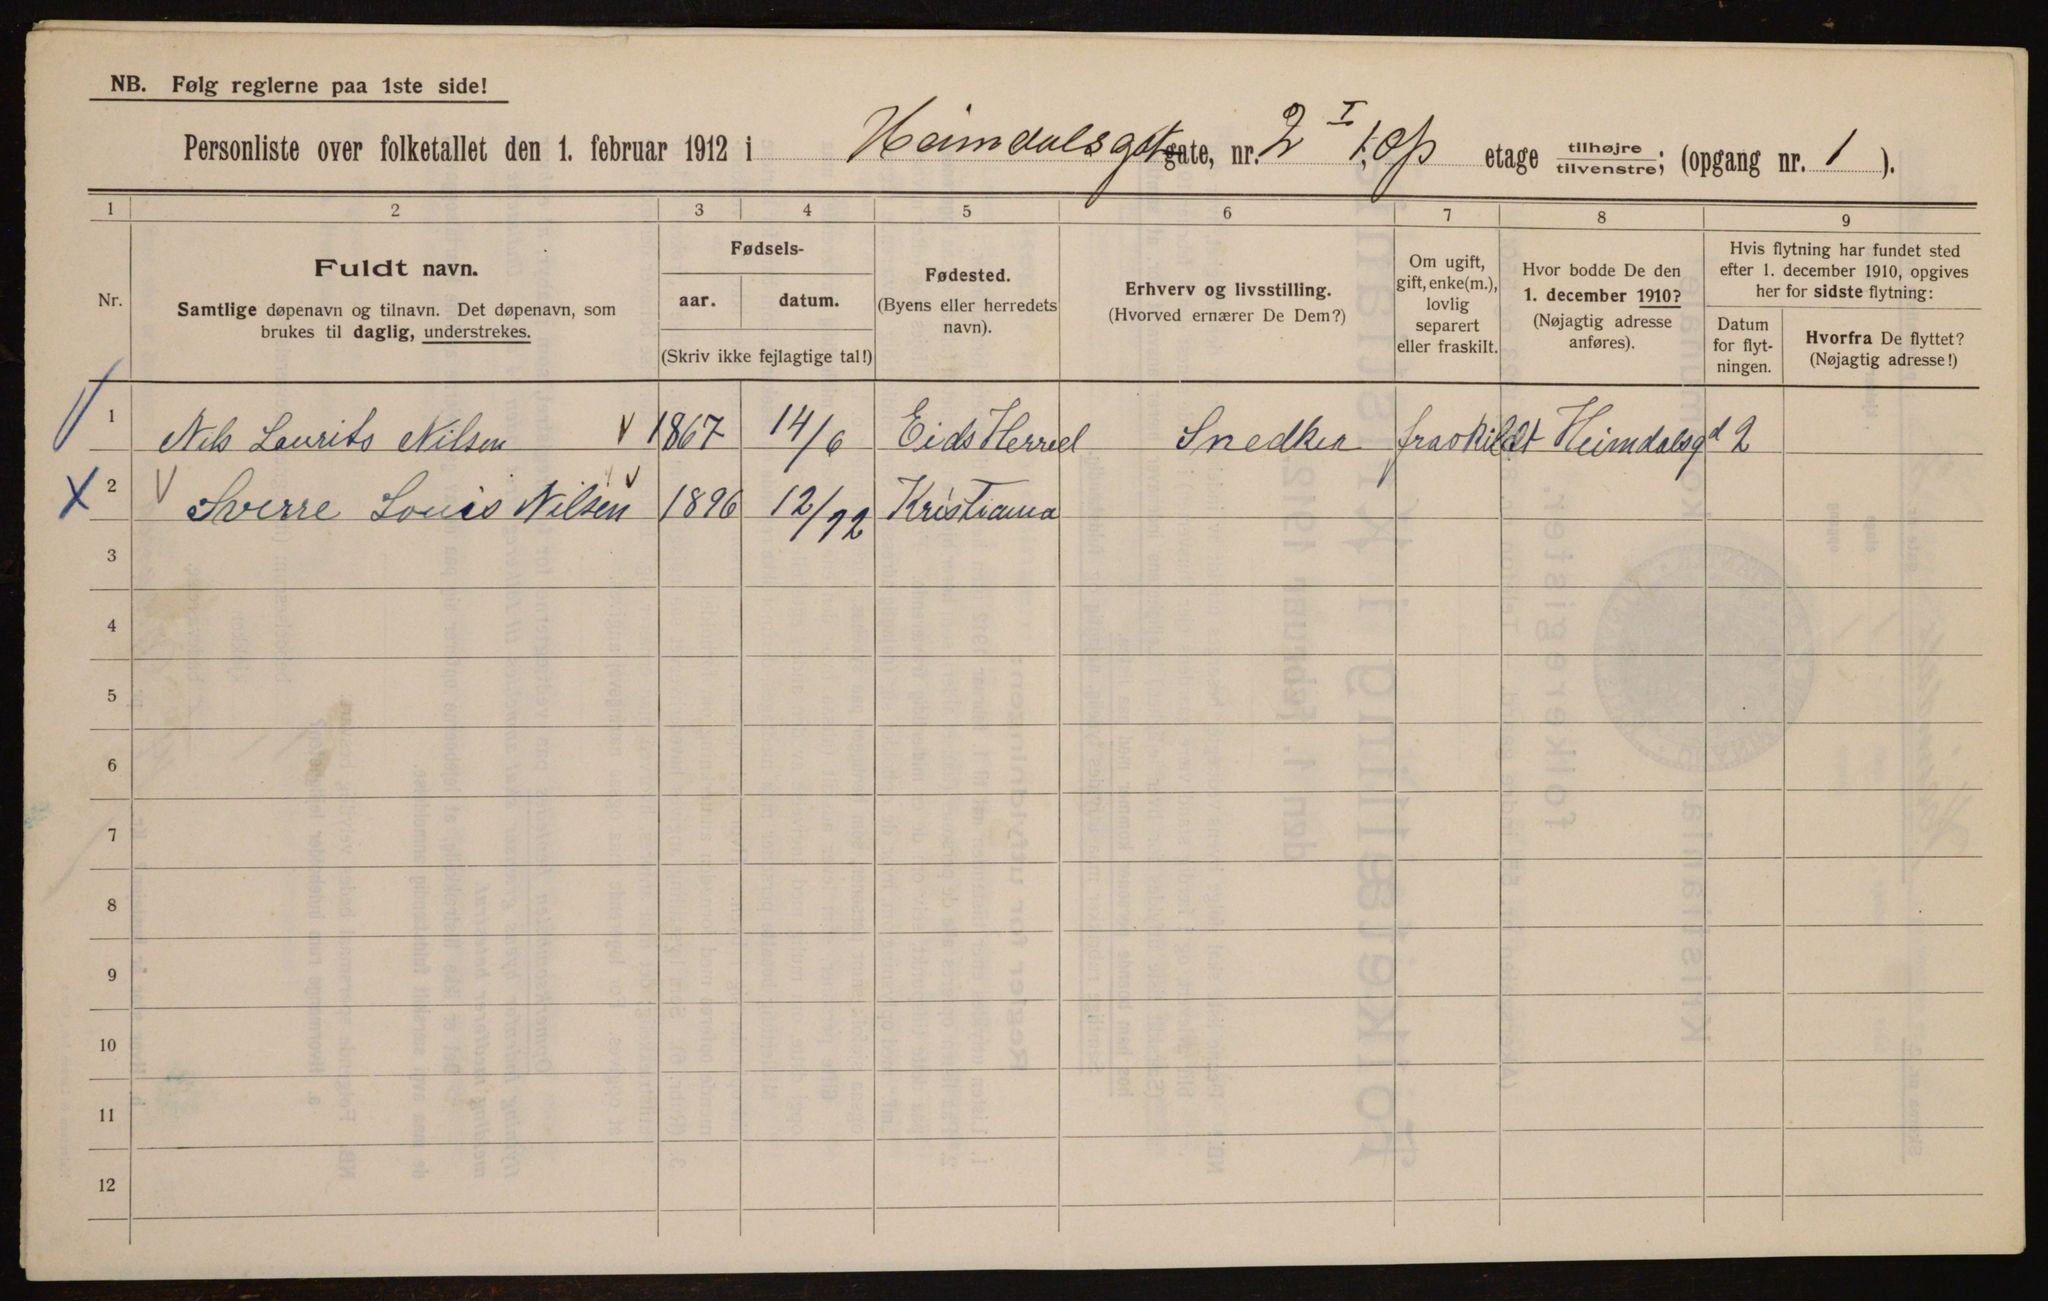 NB. Følg reglerne paa 1ste side!
Personliste over folketallet den 1. februar 1912 i Heimdalsgt gate, nr. 2 I 1. op etage tilhøjre/tilvenstre; (opgang nr. 1).
1 2 3 4 5 6 7 8 9
Nr.
Fuldt navn.
Samtlige døpenavn og tilnavn. Det døpenavn, som
brukes til daglig, understrekes.
Fødsels-
aar. datum.
(Skriv ikke fejlagtige tal!)
Fødested.
(Byens eller herredets
navn).
Erhverv og livsstilling.
(Hvorved ernærer De Dem?)
Om ugift,
gift, enke(m.),
lovlig
separert
eller fraskilt.
Hvor bodde De den
1. december 1910?
(Nøjagtig adresse
anføres).
Hvis flytning har fundet sted
efter 1. december 1910, opgives
her for sidste flytning:
Datum
for flyt-
ningen.
Hvorfra De flyttet?
(Nøjagtig adresse!)
1 Nils Laurits Nilsen V 1867 14/6 Eids Herred Snedker fraskildt Heimdalsgd 2
X 2 V Sverre Louis Nilsen V 1896 12/12 Kristiania
3
4
5
6
7
8
9
10
11
12